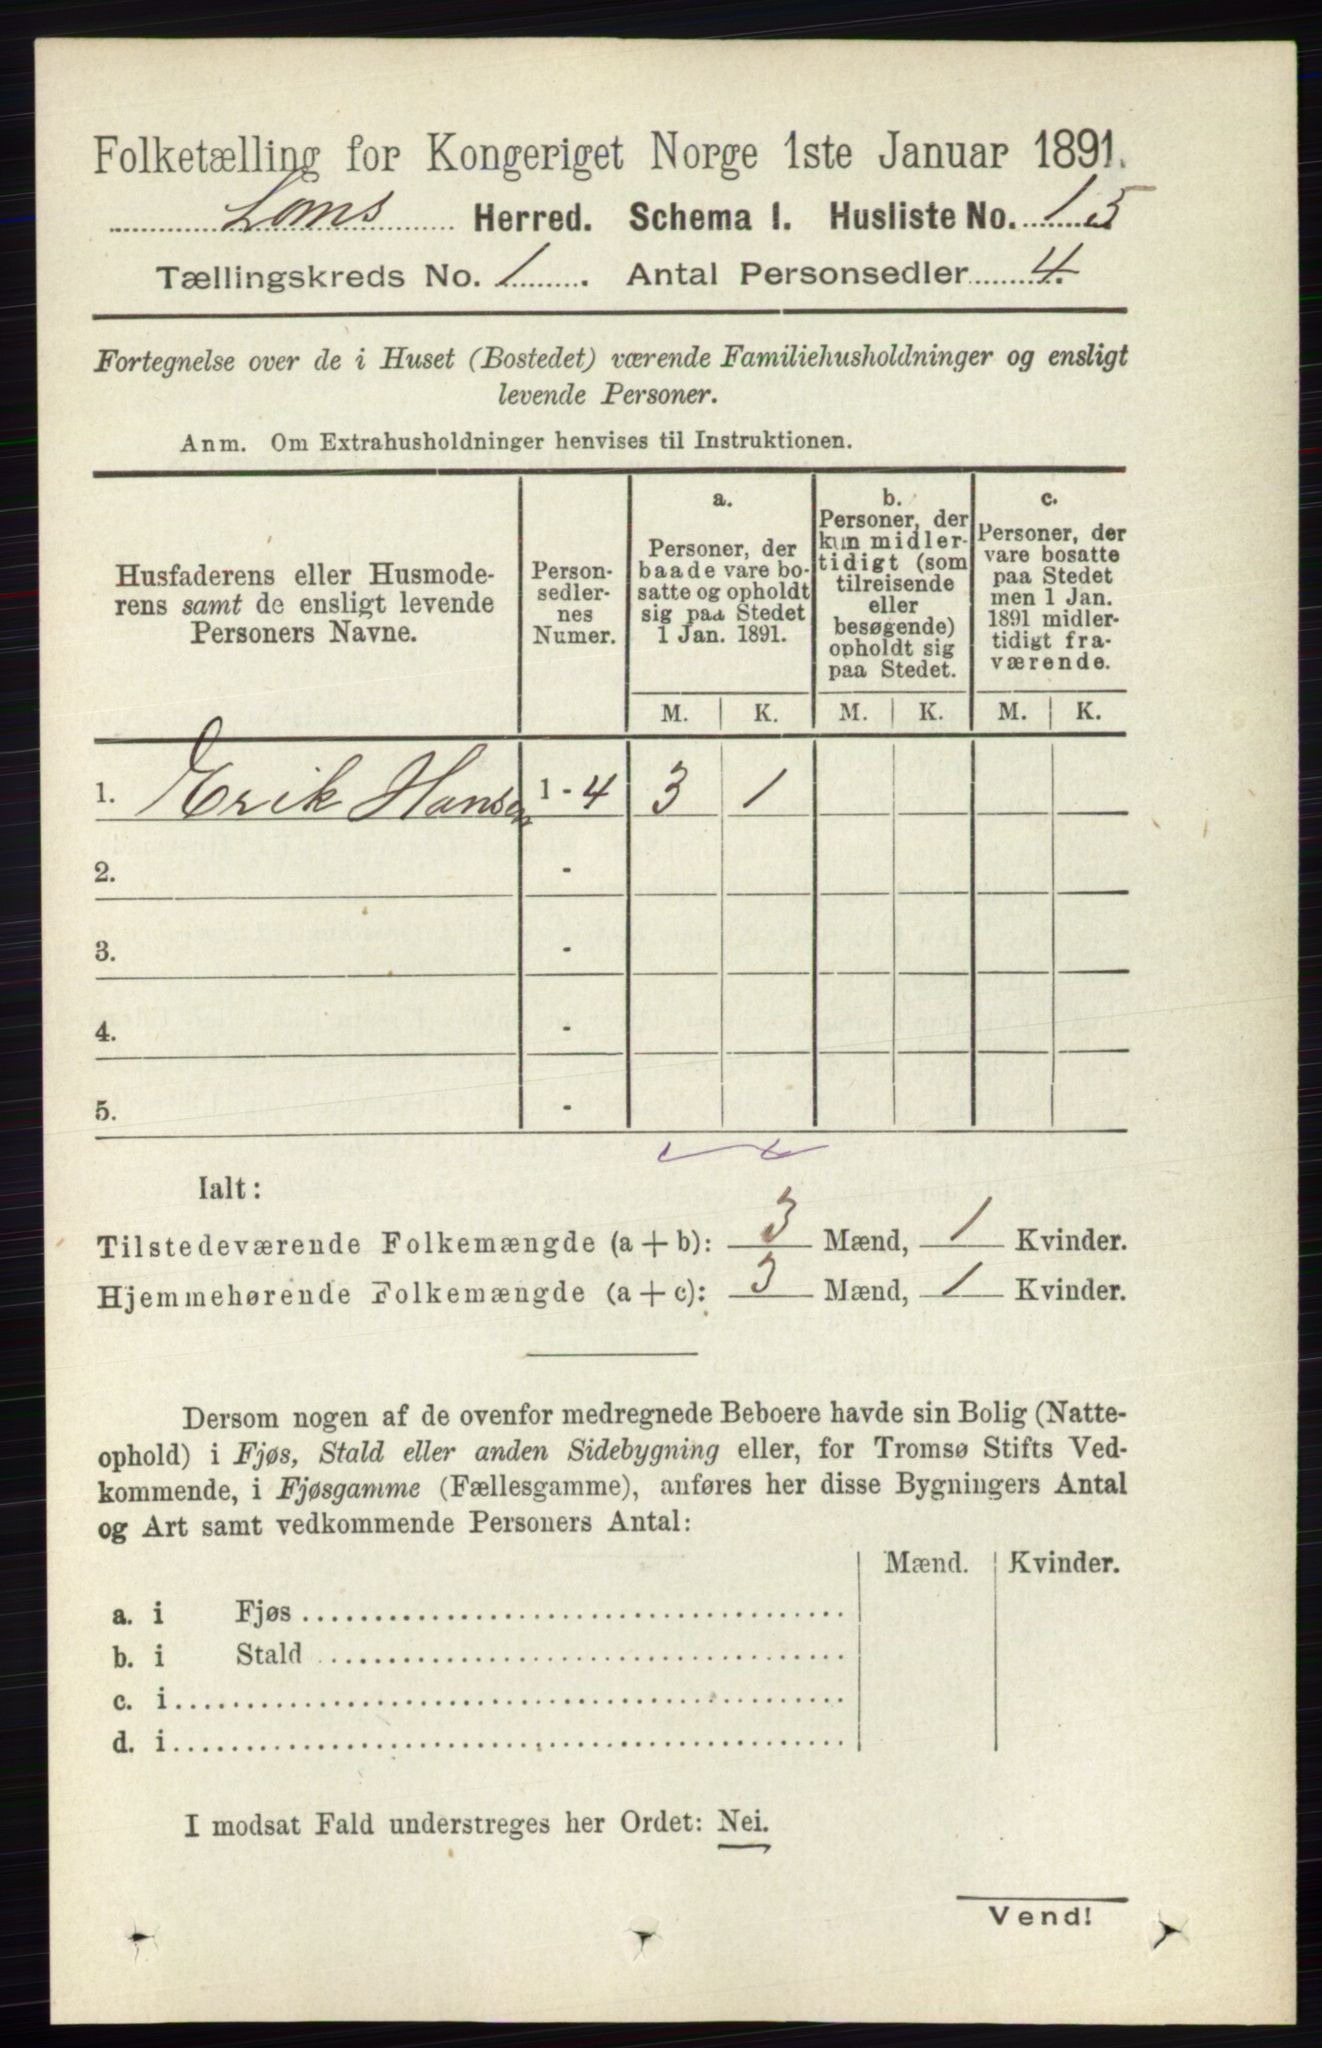 Folketælling for Kongeriget Norge 1ste Januar 1891.
Loms Herred. Schema I. Husliste No. 15
Tællingskreds No. 1. Antal Personsedler 4.
Fortegnelse over de i Huset (Bostedet) værende Familiehusholdninger og ensligt
levende Personer.
Anm. Om Extrahusholdninger henvises til Instruktionen.
Husfaderens eller Husmode-
rens samt de ensligt levende
Personers Navne.
Person-
sedler-
nes
Numer.
a.
Personer, der
baade vare bo-
satte og opholdt
sig paa Stedet
1 Jan. 1891.
b.
Personer, der
kun midler-
tidigt (som
tilreisende
eller
besøgende)
opholdt sig
paa Stedet.
c.
Personer, der
vare bosatte
paa Stedet
men 1 Jan.
1891 midler-
tidigt fra-
værende.
M. K. M. K. M. K.
1. Erik Hansen 1 - 4 3 1
2. -
3. -
4. -
5. -
Ialt:
Tilstedeværende Folkemængde (a + b): 3 Mænd, 1 Kvinder.
Hjemmehørende Folkemængde (a + c): 3 Mænd, 1 Kvinder.
Dersom nogen af de ovenfor medregnede Beboere havde sin Bolig (Natte-
ophold) i Fjøs, Stald eller anden Sidebygning eller, for Tromsø Stifts Ved-
kommende, i Fjøsgamme (Fællesgamme), anføres her disse Bygningers Antal
og Art samt vedkommende Personers Antal:
Mænd. Kvinder.
a. i Fjøs
b. i Stald
c. i
d. i
I modsat Fald understreges her Ordet: Nei.
Vend!